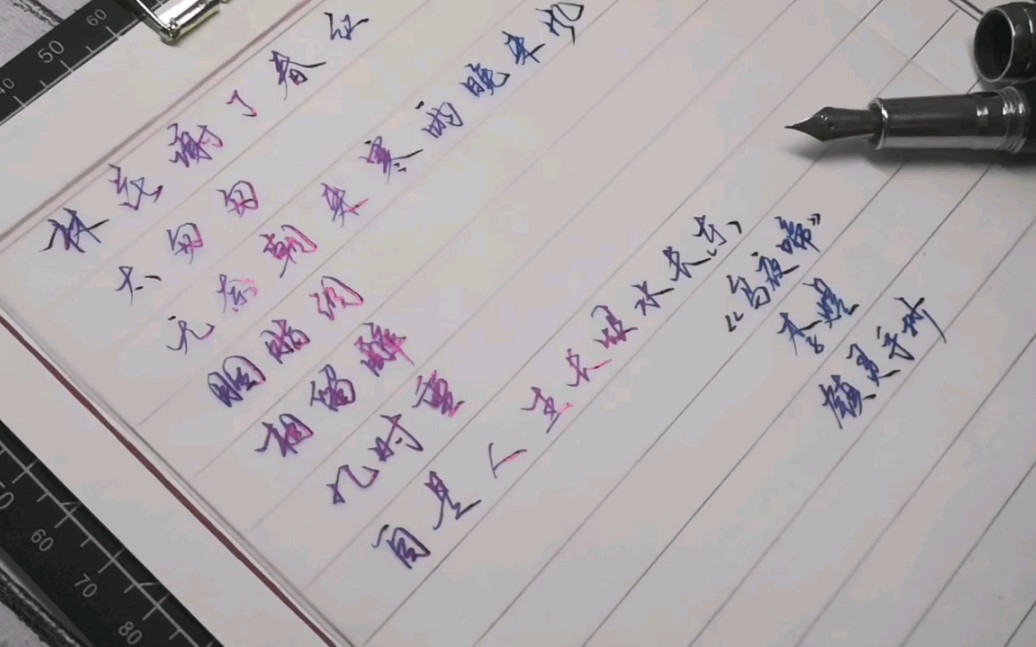 林花谢了春红
太匆匆
无奈朝来寒雨晚来风
胭脂泪
相留醉
几时重
自是人生长恨水长东
《乌夜啼》
李煜
颜灵手抄
40 50 60
60 70 80